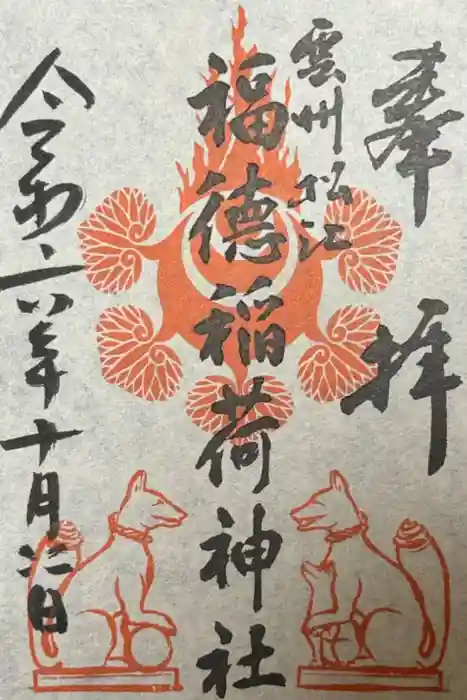 奉拝
雲州松江
福德稲荷神社
令和六年十月二日